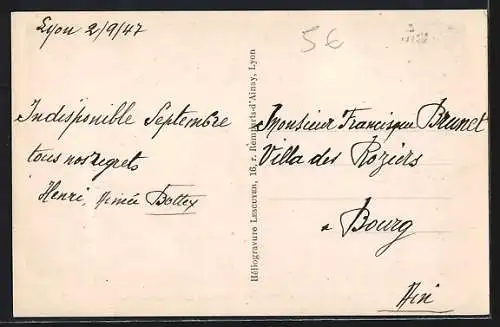 Lyon 2/9/47
5€
Indisponible Septembre
tous nos regrets
Henri, Aimée Bottex
Héliogravure Lescuyer, 16, r. Remparts-d'Ainay, Lyon
Monsieur Francisque Brunet
Villa des Roziers
a Bourg
Ain